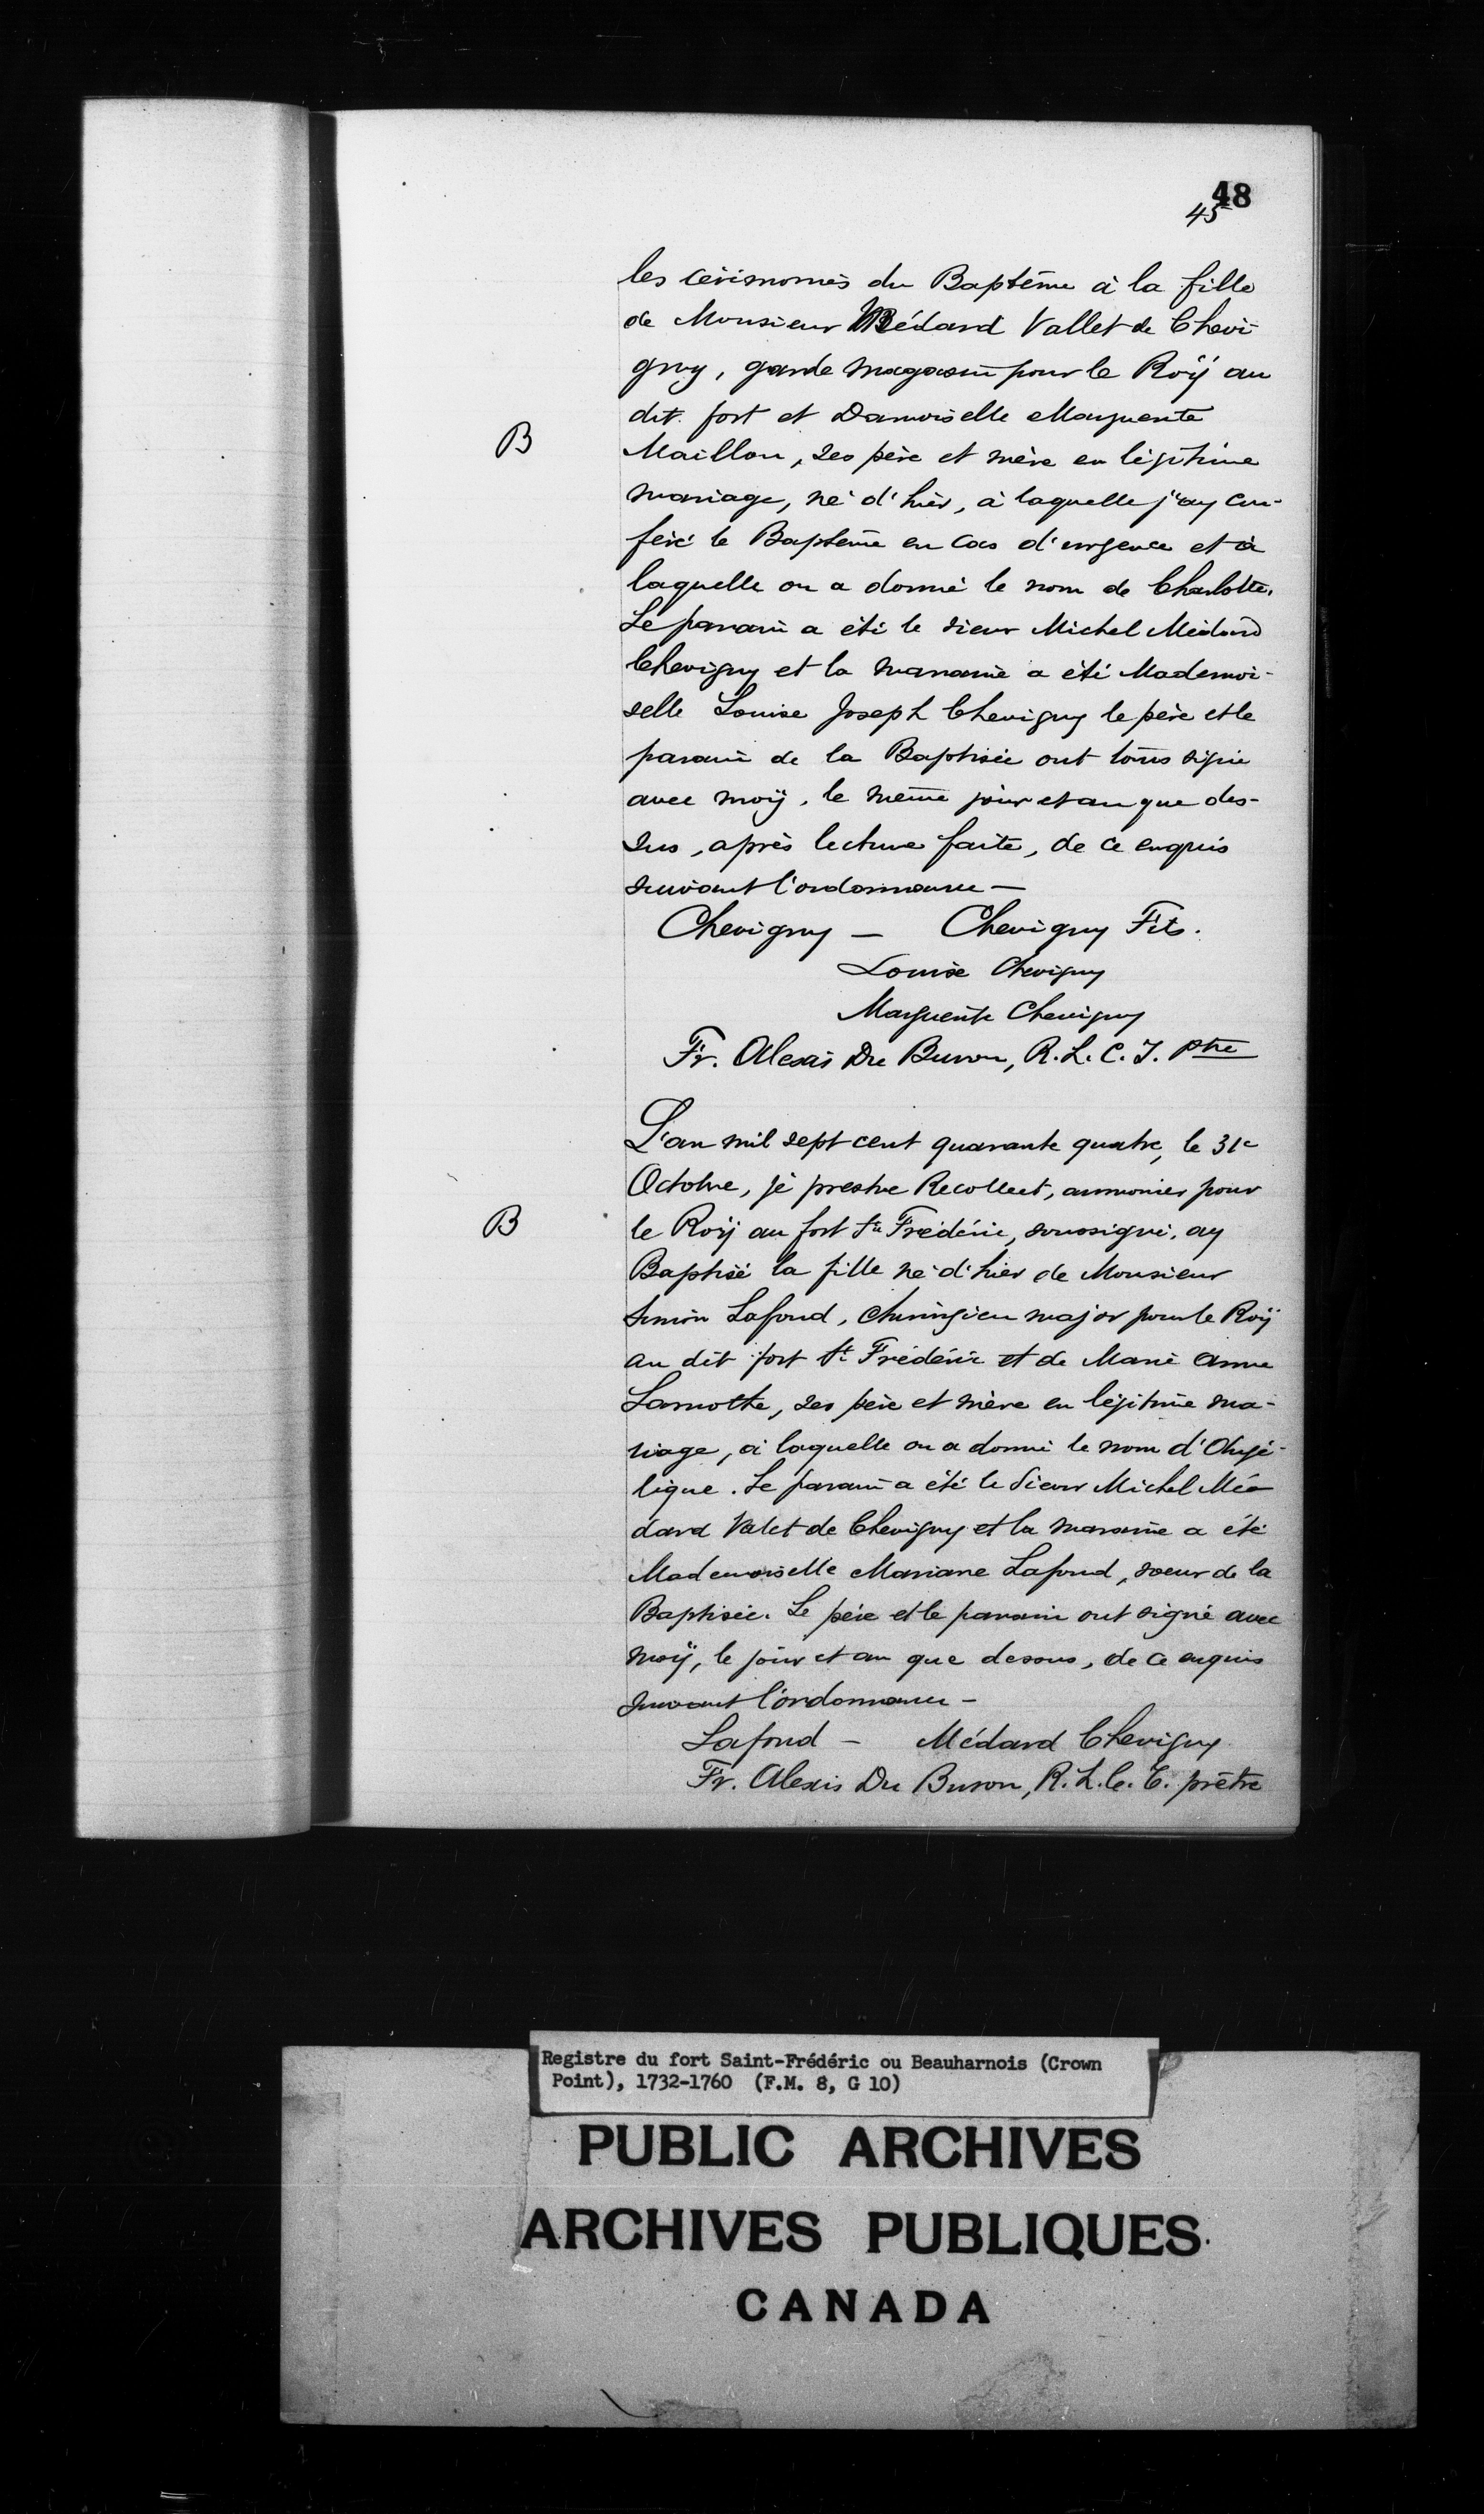 48
45
les cérémonies du Baptême à la fille
de Monsieur Médard Vallet de Chevi
gny, garde magasin pour le Roÿ au
dit fort et Damoiselle Marguerite
B
Maillou, ses père et mère en légitime
mariage, né d'hier, à laquelle j'ay con-
féré le Baptême en cas d'urgence et à
laquelle on a donné le nom de Charlotte.
Le parain a été le sieur Michel Médard
Chevigny et la maraine a été Mademoi-
selle Louise Joseph Chevigny le père et le
parain de la Baptisée ont tous signé
avec moÿ, le même jour et an que des-
sus, après lecture faite, de ce enquis
suivant l'ordonnance —
Chevigny — Chevigny Fils.
Louise Chevigny
Marguerite Chevigny
Fr. Alexis Du Buron, R. L. C. J. ptre
L'an mil sept cent quarante quatre, le 31e
Octobre, je prestre Recollect, aumonier pour
B
le Roÿ au fort St Frédéric, soussigné, ay
Baptisé la fille né d'hier de Monsieur
Simon Lafond, chirurgien major pour le Roÿ
au dit fort St Frédéric et de Marie Anne
Lamothe, ses père et mère en légitime ma-
riage, à laquelle on a donné le nom d'Angé-
lique. Le parain a été le Sieur Michel Mé-
dard Valet de Chevigny et la maraine a été
Mademoiselle Mariane Lafond, soeur de la
Baptisée. Le père et le parain ont signé avec
moÿ, le jour et an que dessus, de ce enquis
suivant l'ordonnance -
Lafond - Médard Chevigny
Fr. Alexis Du Buron, R. L. C. T. prêtre
Registre du fort Saint-Frédéric ou Beauharnois (Crown
Point), 1732-1760 (F.M. 8, G 10)
PUBLIC ARCHIVES
ARCHIVES PUBLIQUES
CANADA